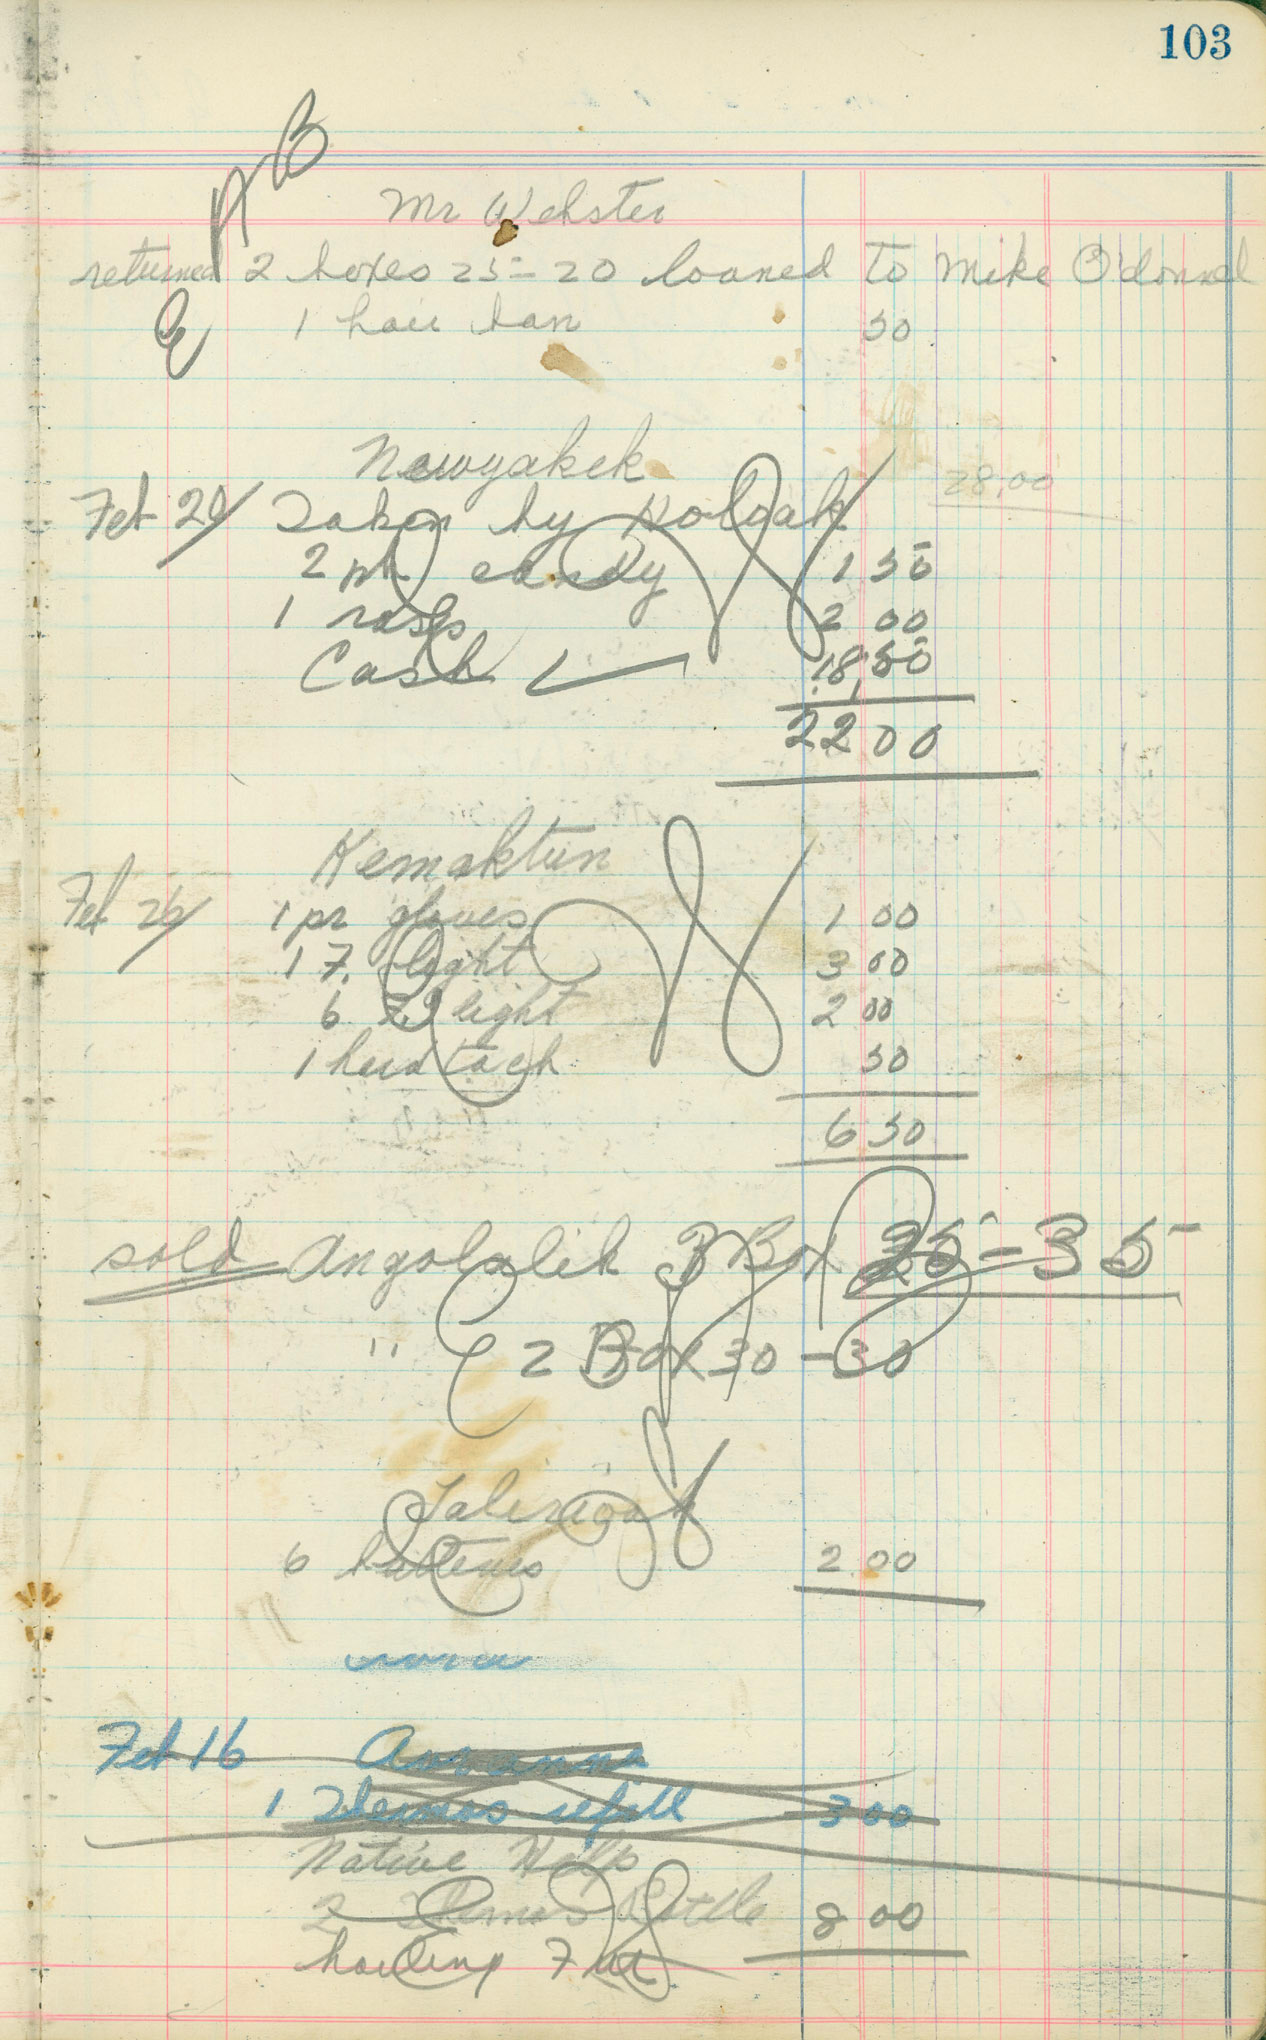 103
Mr Webster
returned 2 boxes 25-20 loaned to Mike O'donnal
1 hair ban 50
Nowyakek
28.00
Feb 20 Taken by
2 pk candy 1 50
1 rasp 2 00
Cash 18,50
22 00
Kemaktun
Feb 26 1 pr gloves 1 00
1 F. light 3 00
6 light 2 00
1 hard tack 50
6 50
sold Angolalik 3 Box 25-35
" 2 Box 30-30
6 batteries 2 00
Feb 16
1 Themos refill 3 00
Native Help
2 Themos Bottle 8 00